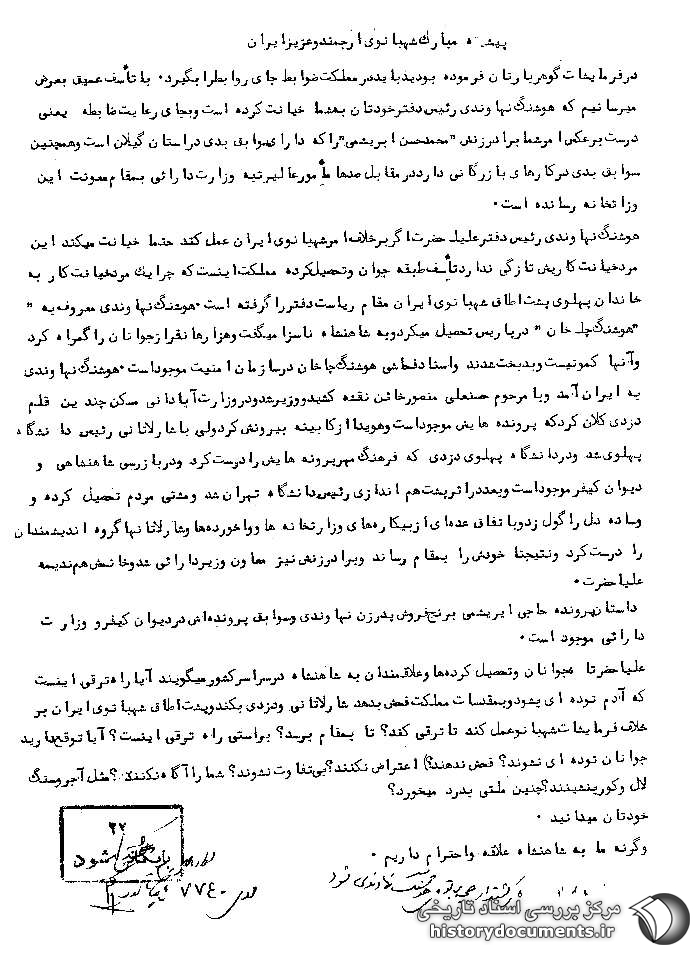 پیشگاه مبارک شهبانوی ارجمند و عزیز ایران
در فرمایشات گوهربارتان فرموده بودید باید در مملکت ضوابط جای روابط را بگیرد. با تأسف عمیق بعرض
میرسانیم که هوشنگ نهاوندی رئیس دفتر خودتان بشما خیانت کرده است و بجای رعایت ضابطه یعنی
درست برعکس امر شما برادرزنش "محمدحسن ابریشمی" را که دارای سوابق بدی در استان گیلان است و همچنین
سوابق بدی در کارهای بازرگانی دارد در مقابل صدها مأمور عالیرتبه وزارت دارائی بمقام معونت این
وزارتخانه رسانده است.
هوشنگ نهاوندی رئیس دفتر علیاحضرت اگر برخلاف امر شهبانوی ایران عمل کند حتما خیانت میکند این
مرد خیانت کاریش تازگی ندارد تأسف طبقه جوان و تحصیلکرده مملکت اینست که چرا یک مرد خیانت کار به
خاندان پهلوی پشت اطاق شهبانوی ایران مقام ریاست دفتر را گرفته است. هوشنگ نهاوندی معروف به "
"هوشنگ چاخان" در پاریس تحصیل میکرد و به شاهنشاه ناسزا میگفت و هزارها نفر از جوانان را گمراه کرد
و آنها کمونیست و بدبخت شدند و اسناد فحاشی هوشنگ چاخان در سازمان امنیت موجود است. هوشنگ نهاوندی
به ایران آمد و با مرحوم حسنعلی منصور خائن نقشه کشید و وزیر شد و در وزارت آبادانی مسکن چندین قلم
دزدی کلان کرد که پرونده هایش موجود است و هویدا از کابینه بیرونش کرد ولی با شارلاتانی رئیس دانشگاه
پهلوی شد و در دانشگاه پهلوی دزدی که فرهنگ مهر پرونده هایش را درست کرد و در بازرسی شاهنشاهی و
دیوان کیفر موجود است و بعد در اثر پشت هم اندازی رئیس دانشگاه تهران شد و مشتی مردم تحصیل کرده و
و ساده دل را گول زد و با تفاق عده ای از بیکاره های وزارتخانه ها و واخورده ها و شارلاتانها گروه اندیشمندان
را درست کرد و نتیجتا خودش را بمقام رساند و برادرزنش نیز معاون وزیر دارائی شد و خانمش هم ندیمه
علیاحضرت.
داستان پرونده حاجی ابریشمی برنج فروش پدرزن نهاوندی و سوابق پرونده اش در دیوان کیفر و وزارت
دارائی موجود است.
علیاحضرتا جوانان و تحصیل کرده ها و علاقمندان به شاهنشاه در سراسر کشور میگویند آیا راه ترقی اینست
که آدم توده ای بشود و بمقدسات مملکت فحش بدهد شارلاتانی و دزدی بکند و پشت اطاق شهبانوی ایران بر
خلاف فرمایشات شهبانو عمل کند تا ترقی کند؟ تا بمقام برسد؟ براستی راه ترقی اینست؟ آیا توقع دارید
جوانان توده ای نشوند؟ فحش ندهند؟ اعتراض نکنند؟ بی تفاوت نشوند؟ شما را آگاه نکنند؟ مثل آجر و سنگ
لال و کور بنشینند؟ چنین ملتی بدرد میخورد؟
خودتان میدانید.
وگرنه ما به شاهنشاه علاقه و احترام داریم.
۲۷
بایگانی شود
نهاوندی شود
۷۷۴۰
مرکز بررسی اسناد تاریخی
historydocuments.ir